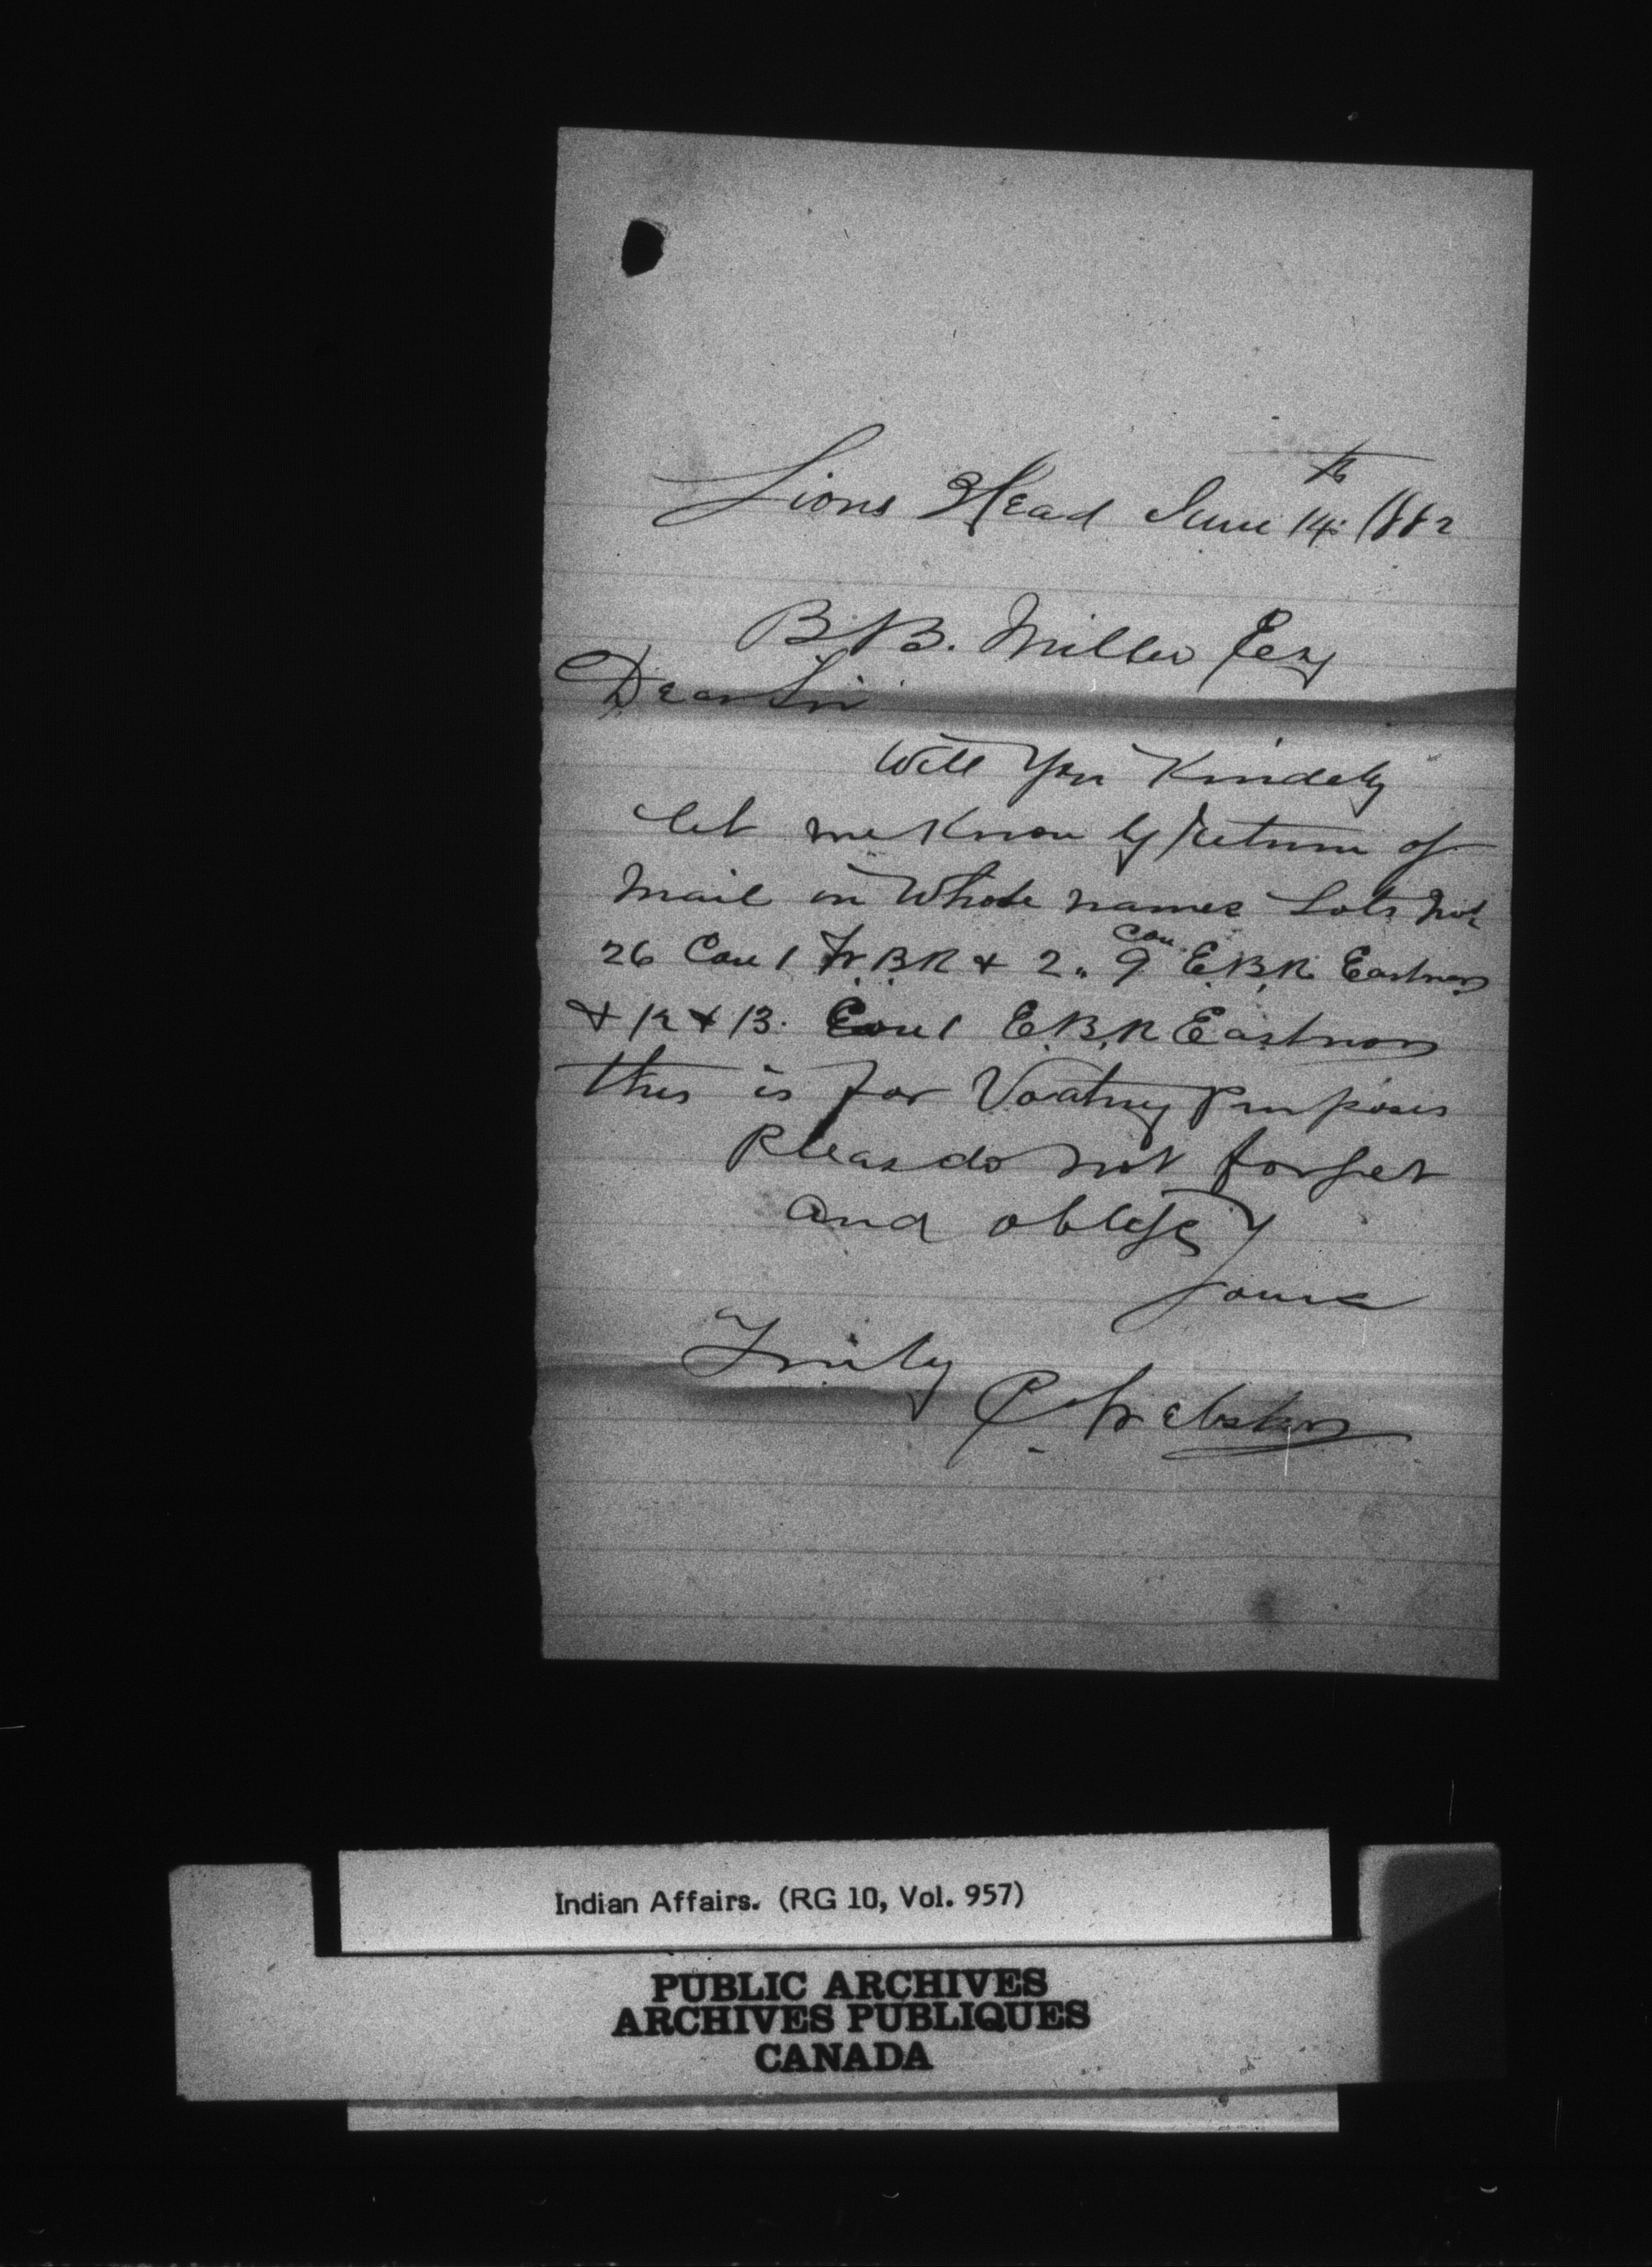 Lions Head June 14th 1882
B. B. Miller Esq
Dear Sir
Will you Kindely
let me Know by return of
Mail in Whose names Lots No
26 Con 1 W.B.R & 2. 9 con E.B.R Eastnor
& 12 & 13. Con 1 E.B.R Eastnor
this is for Voating Purposes
Pleas do not forget
and oblige
Yours
Truly
C. Webster
Indian Affairs. (RG 10, Vol. 957)
PUBLIC ARCHIVES
ARCHIVES PUBLIQUES
CANADA